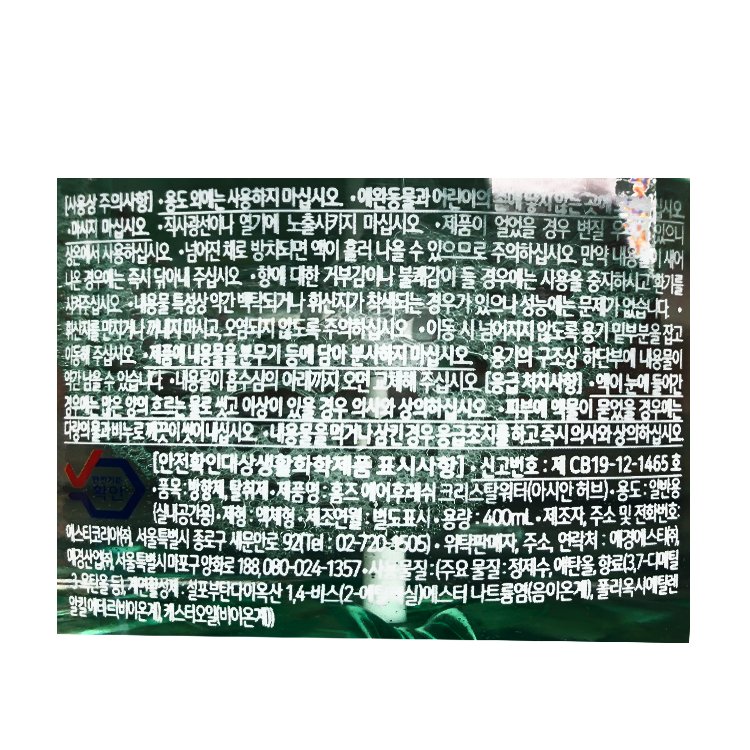 [사용상 주의사항] •용도 외에는 사용하지 마십시오 •애완동물과 어린이의 손에 닿지 않는 곳에 십시오
•마시지 마십시오 •직사광선이나 열기에 노출시키지 마십시오 •제품이 얼었을 경우 변질 있으니
상온에서 사용하십시오 •넘어진 채로 방치되면 액이 흘러 나올 수 있으므로 주의하십시오. 만약 내용물이 새어
나온 경우에는 즉시 닦아내 주십시오 •향에 대한 거부감이나 불쾌감이 들 경우에는 사용을 중지하시고 환기를
시켜주십시오 •내용물 특성상 약간 변탁되거나 휘산지가 착색되는 경우가 있으나 성능에는 문제가 없습니다 •
휘산지를 만지거나 꺼내지 마시고, 오염되지 않도록 주의하십시오 •이동 시 넘어지지 않도록 용기 밑부분을 잡고
이동해 주십시오 •제품에 내용물을 분무기 등에 담아 분사하지 마십시오 용기의 구조상 하단부에 내용물이
약간 남을 수 있습니다 •내용물이 흡수심의 아래까지 오면 교체해 주십시오 [응급 처치사항] •액이 눈에 들어간
경우에는 많은 양의 흐르는 물로 씻고 이상이 있을 경우 의사와 상의하십시오 •피부에 액물이 묻었을 경우에는
다량의 물과 비누로 깨끗이 씻어 내십시오 •내용물을 먹거나 삼킨 경우 응급조치를 하고 즉시 의사와 상의하십시오
[안전확인대상생활화학제품 표시사항] •신고번호 : 제 CB19-12-1465 호
안전기준
확인
•품목 : 방향제, 탈취제 •제품명 : 홈즈 에어후레쉬 크리스탈워터(아시안 허브) •용도 : 일반용
(실내공간용) •제형 : 액체형 •제조연월 : 별도표시 •용량 : 400mL •제조자, 주소 및 전화번호 :
에스티코리아㈜, 서울특별시 종로구 새문안로 92(Tel : 02-720-1505) •위탁판매자, 주소, 연락처 : 애경에스티㈜,
애경산업㈜, 서울특별시 마포구 양화로 188, 080-024-1357 •사용물질 : (주요 물질 : 정제수, 에탄올, 향료(3,7-디메틸
-3-옥탄올 등), 계면활성제 : 설포부탄다이옥산 1,4-비스(2-에틸헥실)에스터 나트륨염(음이온계), 폴리옥시에틸렌
알킬에테르(비이온계), 캐스터오일(비이온계))